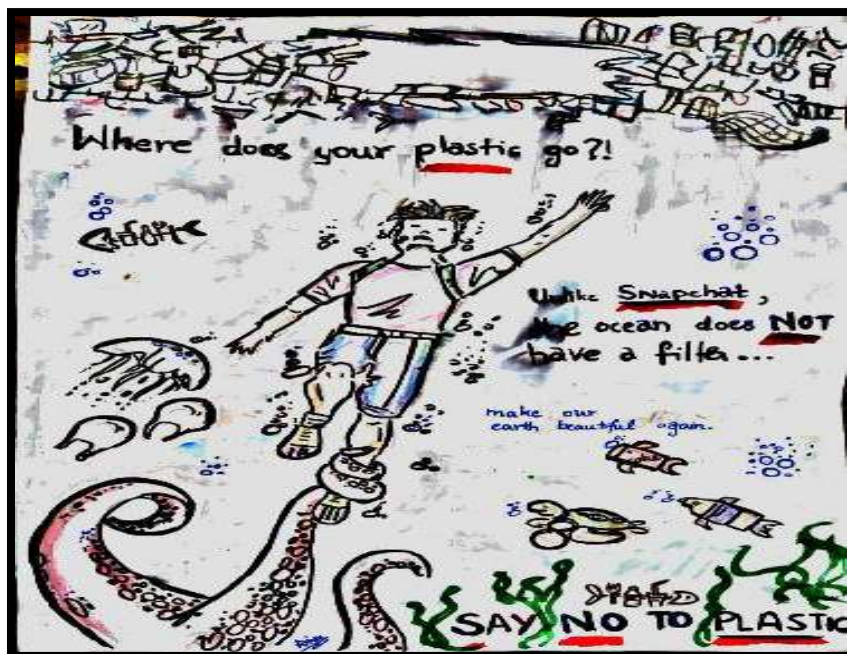 Where does your plastic go?!
Unlike Snapchat,
the ocean does NOT
have a filter...
make our
earth beautiful again.
SAY NO TO PLASTIC